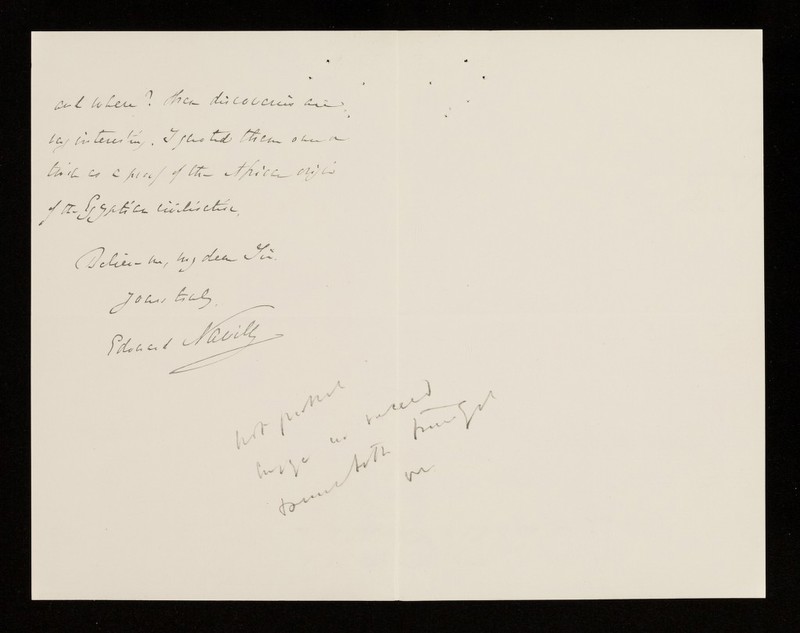 and where? these discoveries are
very interesting. I quoted them once or
twice as a proof of the African origin
of the Egyptian civilisation.
Believe me, my dear Sir
yours truly
Edouard Naville
not
as